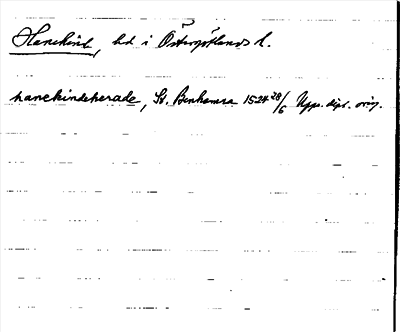 Hanekind, hd i Östergötlands l.
hanekindeherade, St. Benhamra 1524 28/6 Upps. dipl. orig.